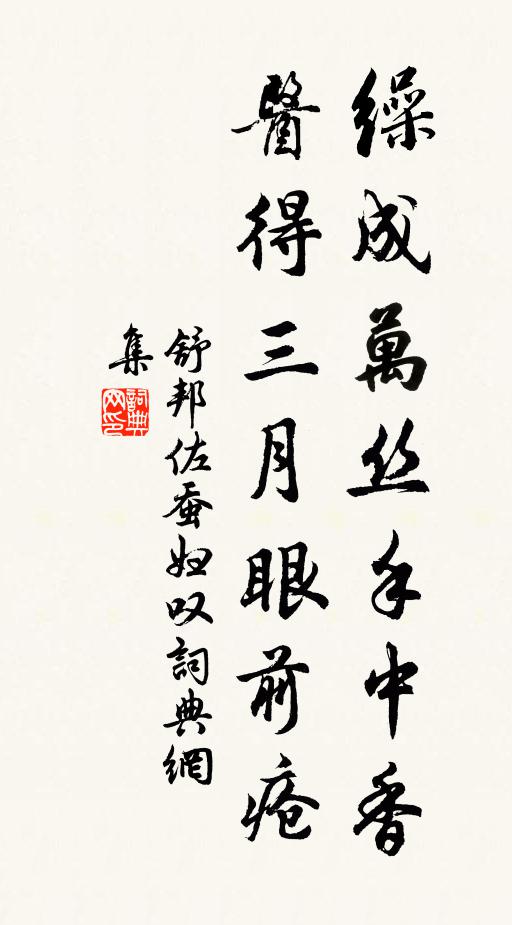 繰成萬丝手中香
醫得三月眼前疮
舒邦佐蚕妇叹詞典網
集
詞典
网印